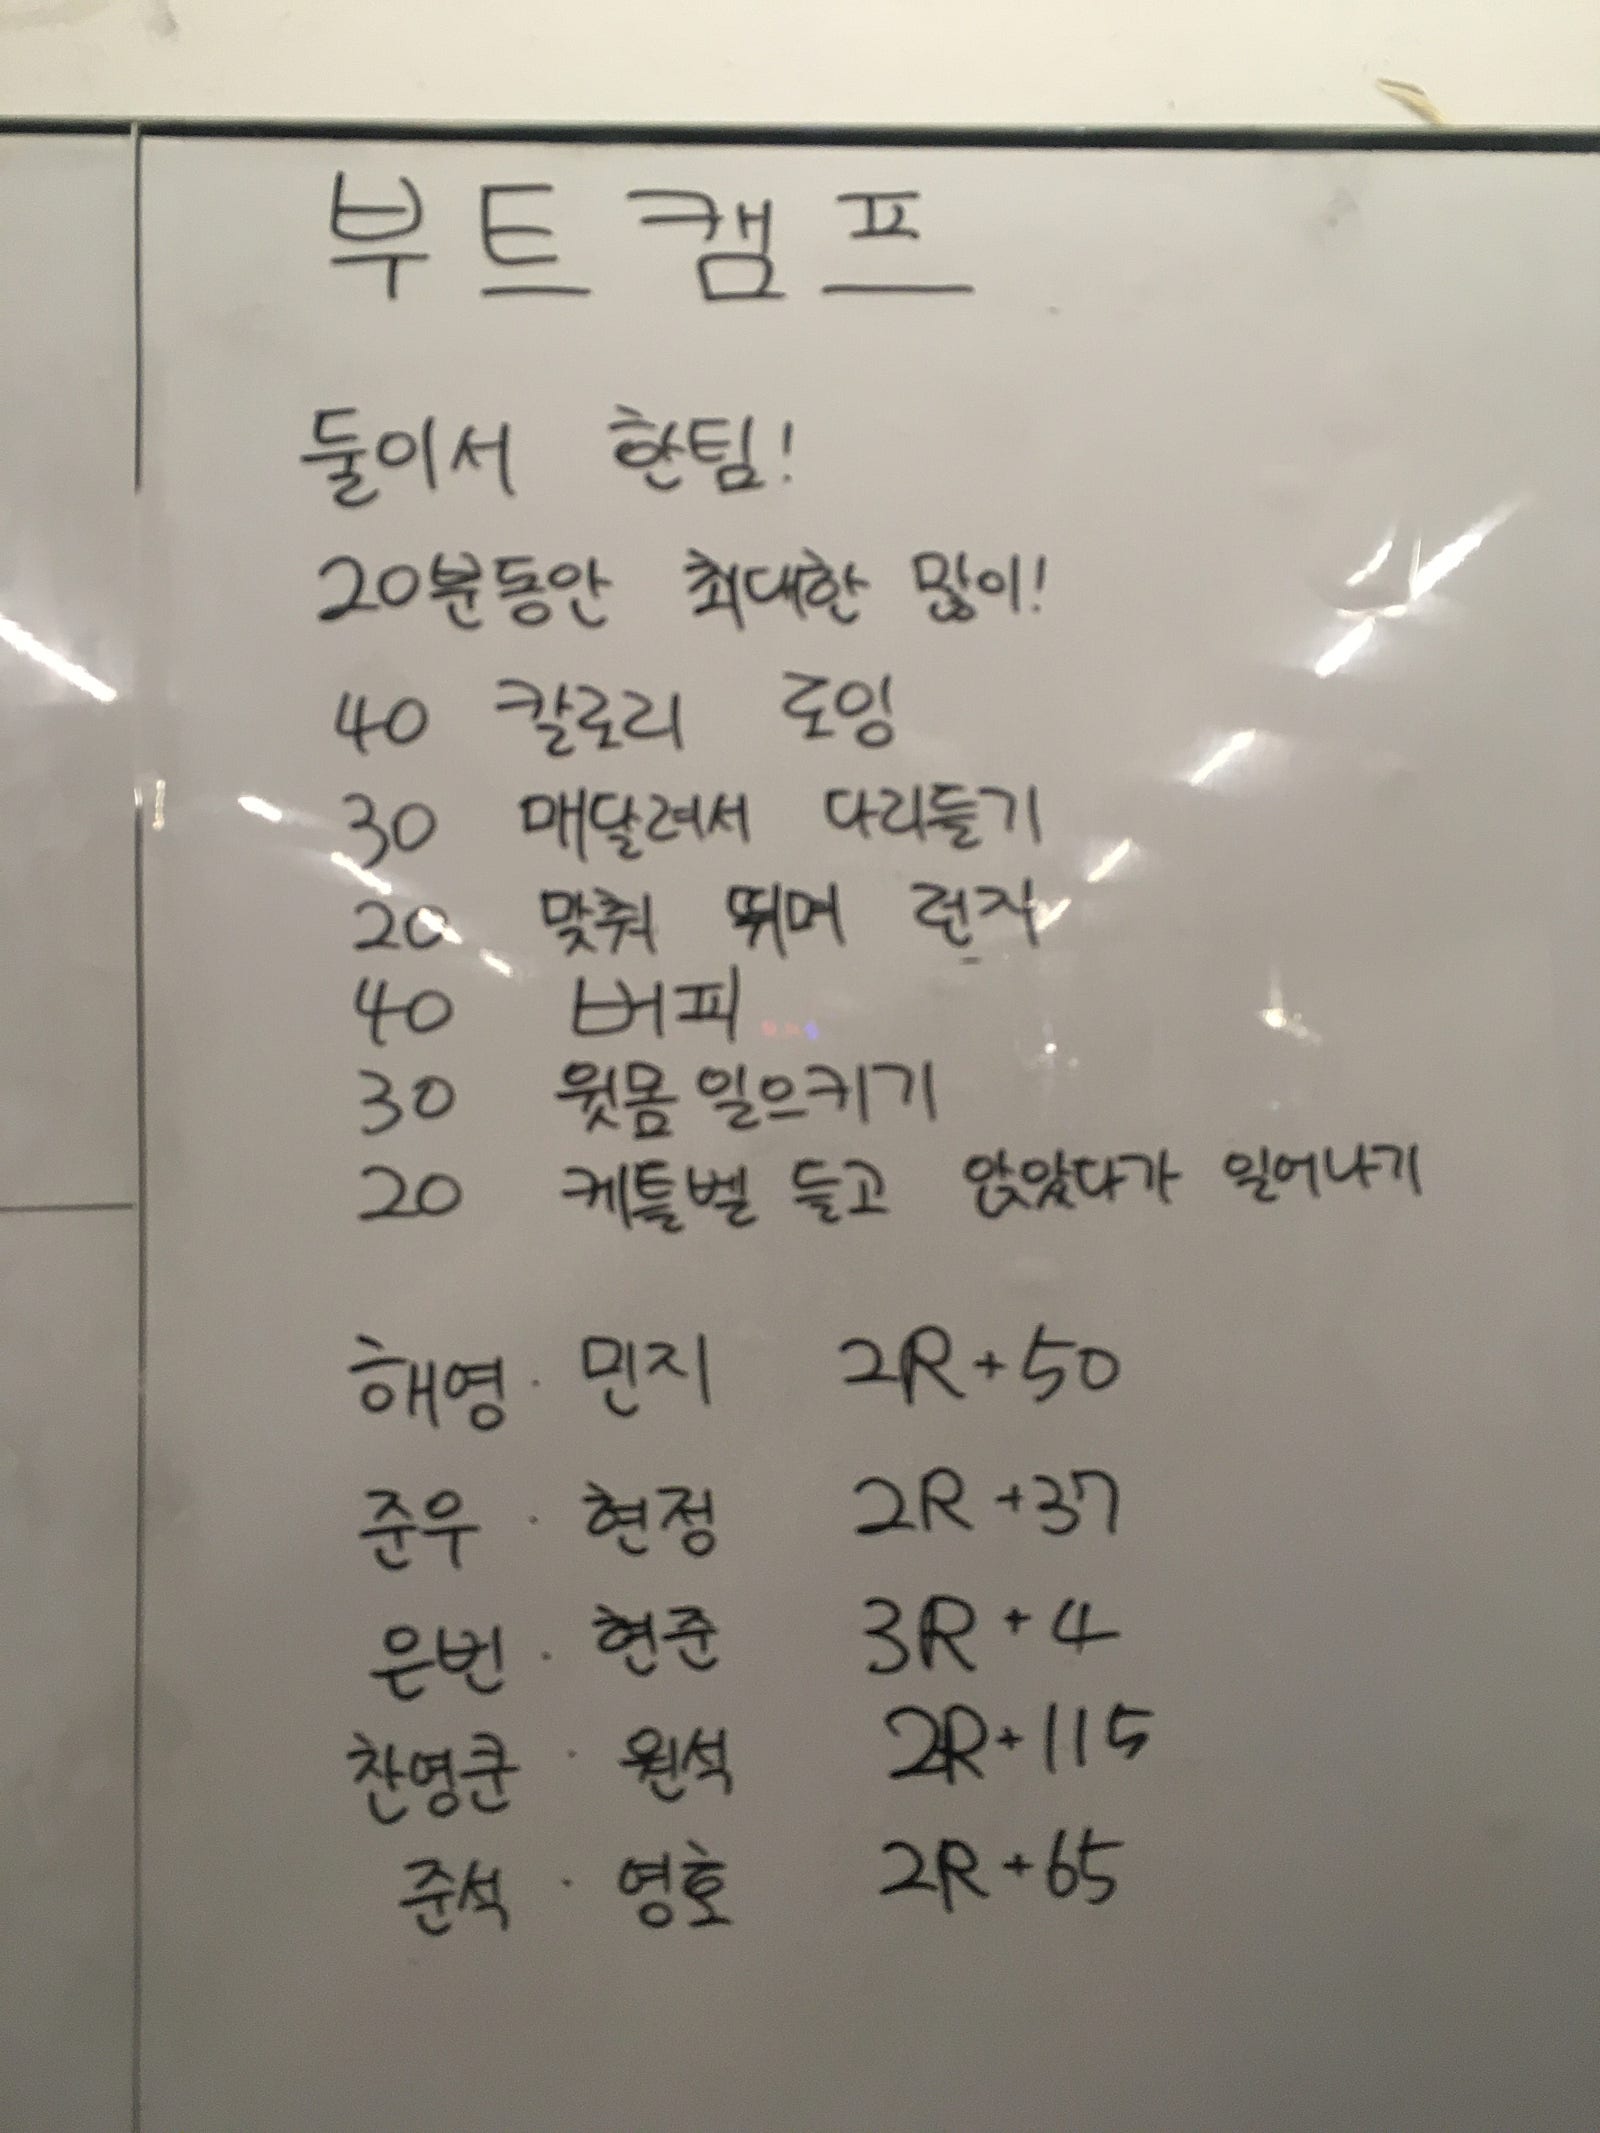 부트캠프
둘이서 한팀!
20분동안 최대한 많이!
40 칼로리 로잉
30 매달려서 다리들기
20 맞춰 뛰며 런지
40 버피
30 윗몸 일으키기
20 케틀벨 들고 앉았다가 일어나기
해영 · 민지 2R+50
준우 · 현정 2R+37
은빈 · 현준 3R+4
찬영쿤 · 원석 2R+115
준석 · 영호 2R+65